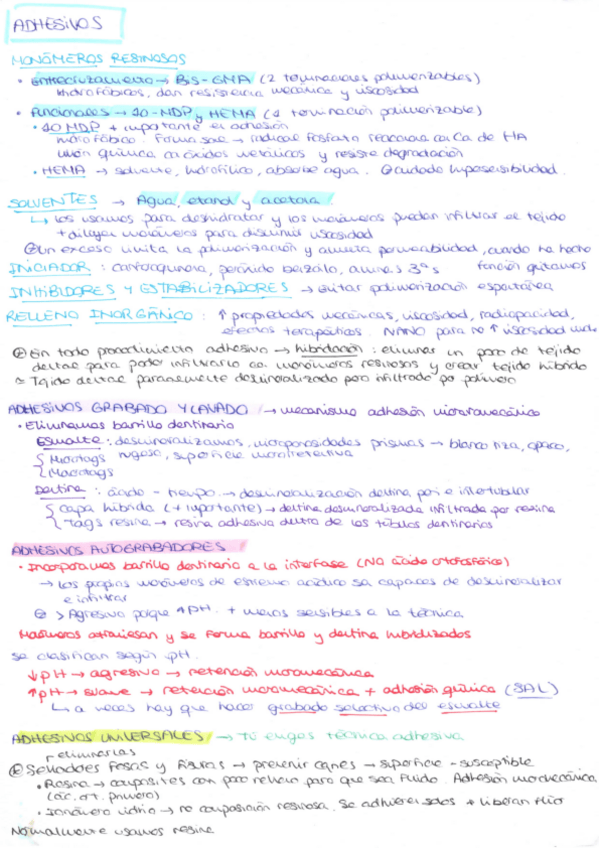 ADHESIVOS
MONÓMEROS RESINOSOS
• Entrecruzamiento → Bis-GMA (2 terminaciones polimerizables)
hidrofóbicos, dan resistencia mecánica y viscosidad
• Funcionales → 10-MDP y HEMA (1 terminación polimerizable)
• 10 MDP + importante en adhesión
hidrofóbico. Forma sal → radical fosfato reacciona con Ca de HA
unión química con óxidos metálicos y resiste degradación
• HEMA → solvente, hidrófilico, absorbe agua. cuidado hipersensibilidad
SOLVENTES → Agua, etanol y acetona
↳ los usamos para deshidratar y los monómeros puedan infiltrar el tejido
+ diluyen monómeros para disminuir viscosidad
Un exceso limita la polimerización y aumenta permeabilidad, cuando ha hecho
función quitamos
INICIADOR : canforquinona, peróxido benzoilo, aminas 3ºs
INHIBIDORES Y ESTABILIZADORES → Evitar polimerización espontánea
RELLENO INORGÁNICO : ↑ propiedades mecánicas, viscosidad, radiopacidad,
efectos terapéuticos. NANO para no ↑ viscosidad
En todo procedimiento adhesivo → hibridación : eliminar un poco de tejido
dentar para poder infiltrarlo de monómeros resinosos y crear tejido híbrido
= Tejido dental parcialmente desmineralizado pero infiltrado por polímero
ADHESIVOS GRABADO Y LAVADO → mecanismo adhesión micromecánico
• Eliminamos barrillo dentinario
Esmalte : desmineralizamos, microporosidades prismas → blanco tiza, opaco,
rugoso, superficie microrretentiva
{ Microtags
Macrotags
Dentina : ácido - tiempo → desmineralización dentina peri e intertubular
{ capa híbrida (+ importante) → dentina desmineralizada infiltrada por resina
tags resina → resina adhesiva dentro de los túbulos dentinarios
ADHESIVOS AUTOGRABADORES
• Incorporamos barrillo dentinario a la interfase (NO ácido ortofosfórico)
→ Los propios monómeros de extremo acídico son capaces de desmineralizar
e infiltrar
> Agresivo porque ↑ pH. + menos sensibles a la técnica
Monómeros atraviesan y se forma barrillo y dentina hibridizados
se clasifican según pH.
↓ pH → agresivo → retención micromecánica
↑ pH → suave → retención micromecánica + adhesión química (SAL)
↳ a veces hay que hacer grabado selectivo del esmalte
ADHESIVOS UNIVERSALES → Tú eliges técnica adhesiva
eliminarlas
Selladores Fosas y Fisuras → prevenir caries → superficie - susceptible
• Resina → composites con poco relleno para que sea fluido. Adhesión micromecánica
(ác. ort. primero)
• Ionómero vidrio → no composición resinosa. Se adhieren solos + liberan flúor
Normalmente usamos resina